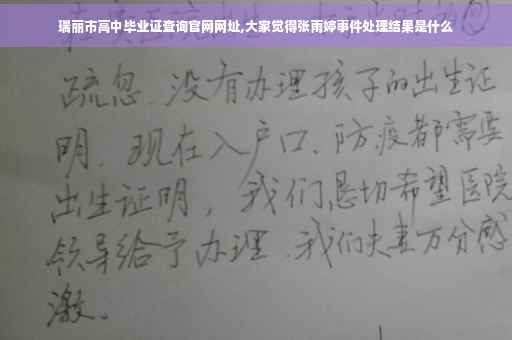 瑞丽市高中毕业证查询官网网址,大家觉得张雨婷事件处理结果是什么
疏忽、没有办理孩子的出生证
明、现在入户口、防疫都需要
出生证明，我们恳切希望医院
领导给予办理、我们夫妻万分感
激。